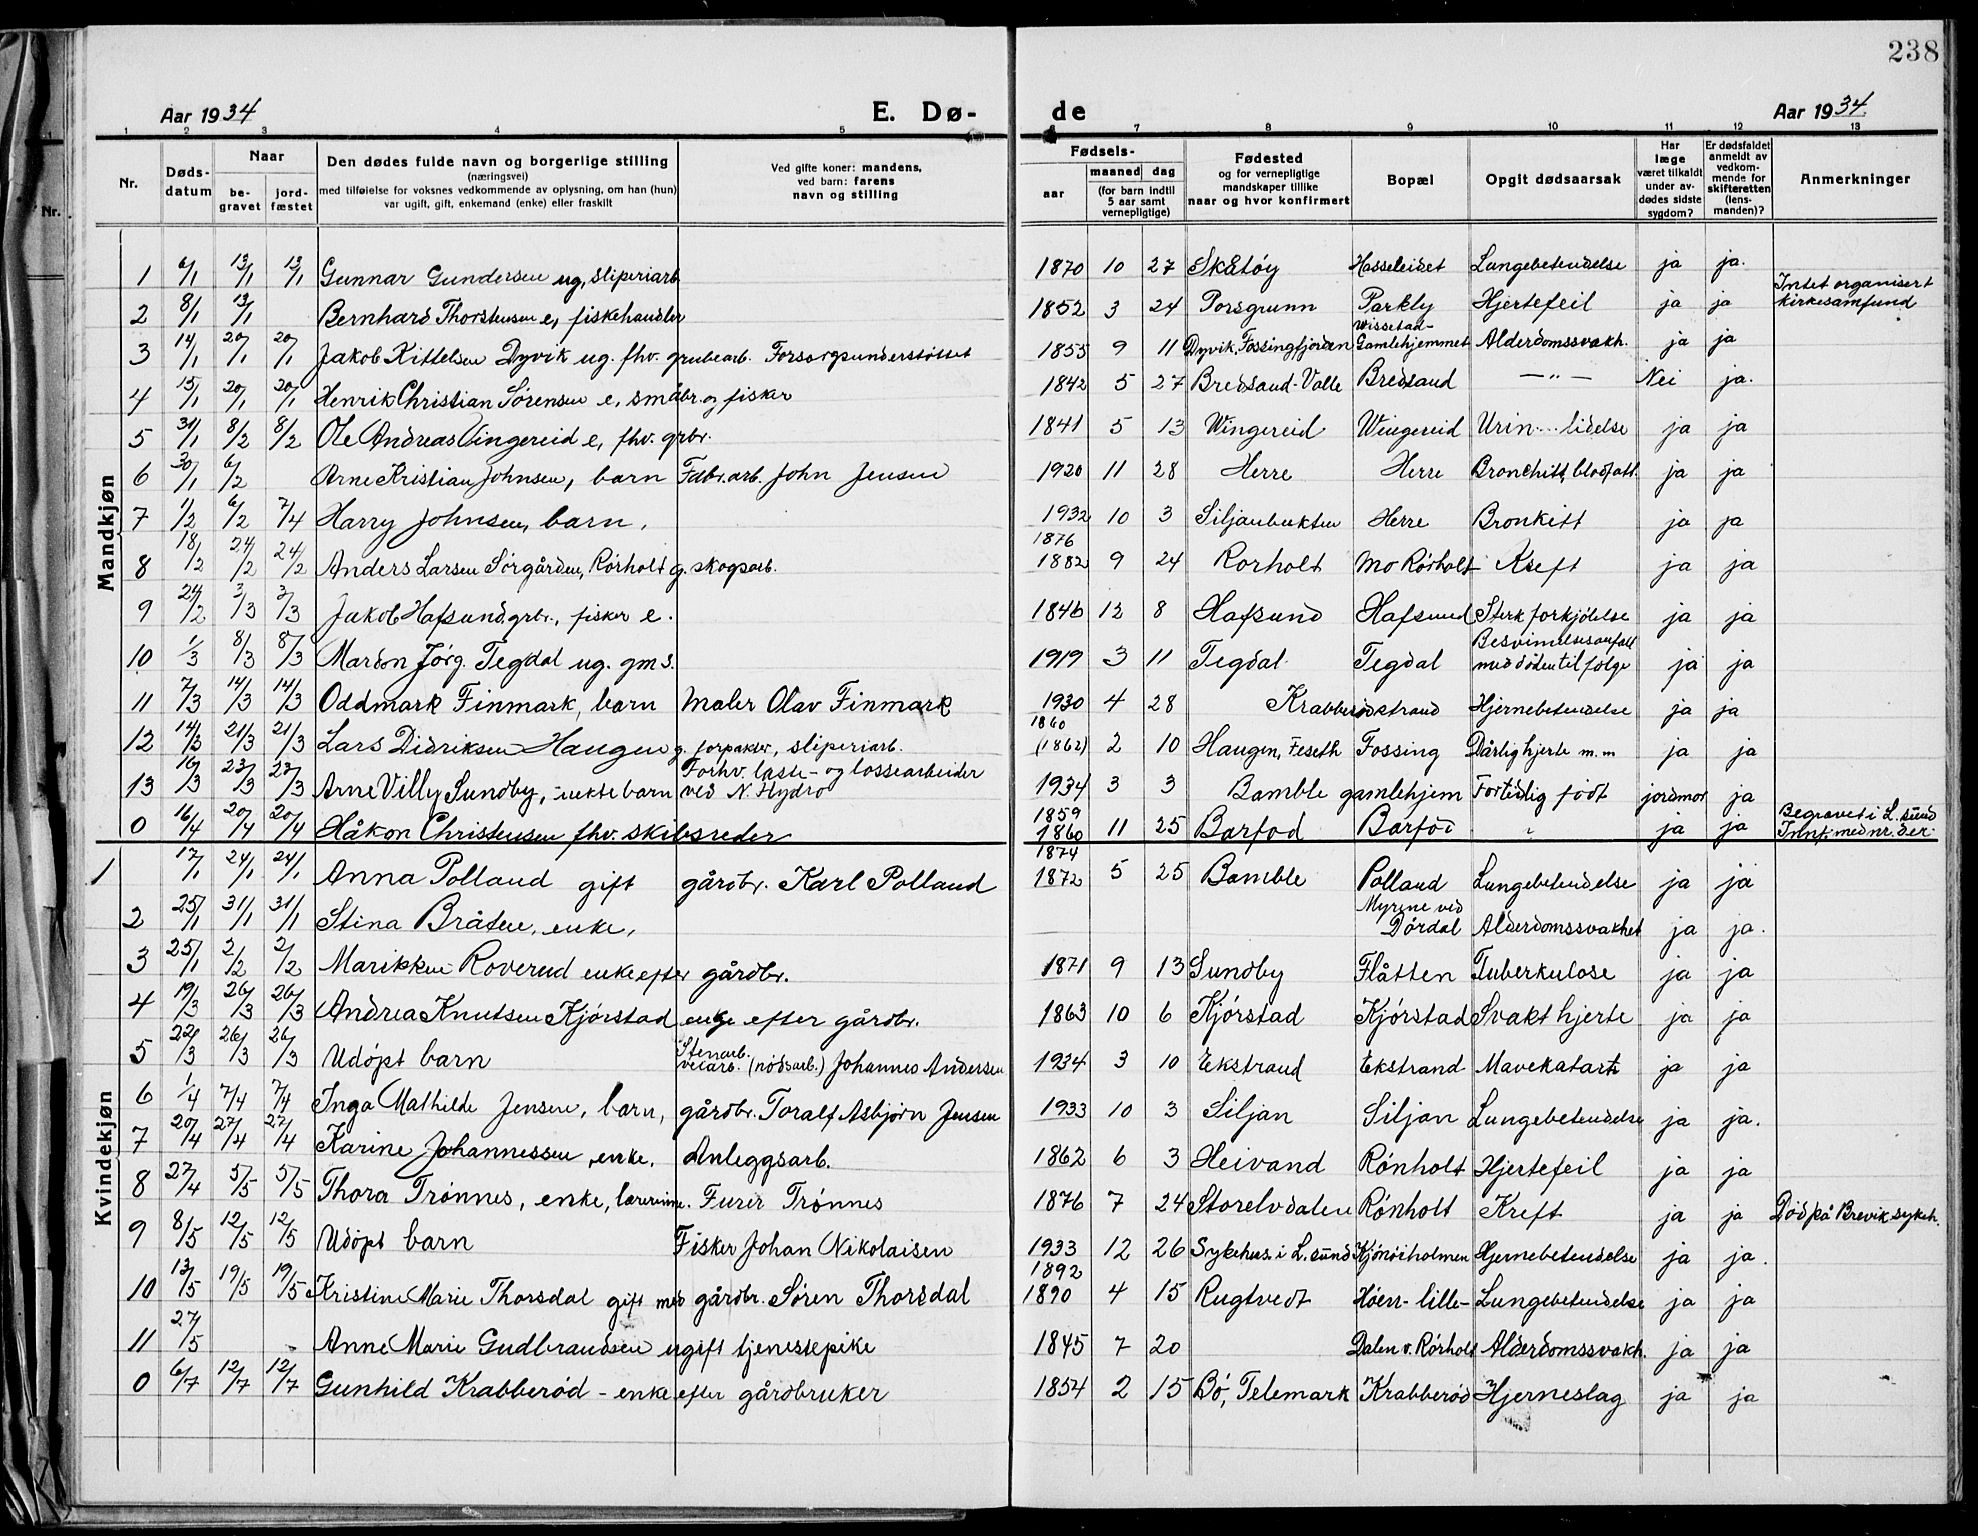 238
Aar 1934 E. Dø- de Aar 1934
1 2 3 4 5 7 8 9 10 11 12 13
Nr. Døds-datum Naar be-gravet jord-fæstet Den dødes fulde navn og borgerlige stilling (næringsvei) med tilføielse for voksnes vedkommende av oplysning, om han (hun) var ugift, gift, enkemand (enke) eller fraskilt Ved gifte koner: mandens, ved barn: farens navn og stilling Fødsels- aar maaned dag (for barn indtil 5 aar samt vernepligtige) Fødested og for vernepligtige mandskaper tillike naar og hvor konfirmert Bopæl Opgit dødsaarsak Har læge været tilkaldt under av-dødes sidste sygdom? Er dødsfaldet anmeldt av vedkom-mende for skifteretten (lens-manden)? Anmerkninger
Mandkjøn
1 6/1 13/1 13/1 Gunnar Gundersen ug, sliperiarb 1870 10 27 Skåtøy Hasseleidet Lungebetendelse ja ja.
2 8/1 13/1 Bernhard Thorstensen e, fiskehandler 1852 3 24 Porsgrunn Parkly Hjertefeil ja ja Intet organisert kirkesamfund
3 14/1 20/1 20/1 Jakob Kittelsen Dyvik ug. fhv. grubearb. Forsorgsunderstøttet 1855 9 11 Dyvik, Fossingfjorden Wissestad-Gamlehjemmet Alderdomssvakh. ja ja
4 15/1 20/1 20/1 Henrik Christian Sørensen e, småbr. og fisker 1842 5 27 Bredsand-Valle Bredsand — " — Nei ja.
5 31/1 8/2 8/2 Ole Andreas Vingereid e, fhv. grbr. 1841 5 13 Wingereid Wingereid Urin...lidelse ja ja
6 30/1 6/2 Arne Kristian Johnsen, barn Fabr.arb. John Jensen 1920 11 28 Herre Herre Bronchitt, blodfatt. ja ja
7 1/2 6/2 7/4 Harry Johnsen, barn. 1932 10 3 Siljanbukten Herre Bronkitt ja ja
8 18/2 24/2 24/2 Anders Larsen Sørgården, Rørholt g. skogsarb. 1876 1882 9 24 Rorholt Mo Rørholt Kreft ja ja
9 24/2 3/3 3/3 Jakob Hafsund grbr., fisker e. 1846 12 8 Hafsund Hafsund Sterk forkjølelse ja ja
10 1/3 8/3 8/3 Mardon Jørg. Tegdal ug. gms. 1919 3 11 Tegdal Tegdal Besvimelsesanfall med døden til følge ja ja
11 7/3 14/3 14/3 Oddmark Finmark, barn Maler Olav Finmark 1930 4 28 Krabberødstrand Hjernebetendelse ja ja
12 14/3 21/3 21/3 Lars Didriksen Haugen g. forpakter, sliperiarb. 1860 (1862) 2 10 Haugen, Feseth Fossing Dårlig hjerte m.m ja ja
13 16/3 23/3 23/3 Arne Villy Sundby, uekte barn Forhv. laste- og lossearbeider ved N. Hydro 1934 3 3 Bamble gamlehjem Fortidlig født jordmor ja
0 16/4 20/4 20/4 Håkon Christensen fhv. skibsreder 1859 1860 11 25 Barfod Barfod " ja ja Begravet i L.sund Innf. med nr. der.
Kvindekjøn
1 17/1 24/1 24/1 Anna Polland gift gårdbr. Karl Polland 1874 1872 5 25 Bamble Polland Lungebetendelse ja ja
2 25/1 31/1 31/1 Stina Bråten, enke, Myrene ved Dørdal Alderdomssvakhet ja ja.
3 25/1 2/2 2/2 Marikken Roverud enke efter gårdbr. 1871 9 13 Sundby Flåtten Tuberkulose ja ja
4 19/3 26/3 26/3 Andrea Knutsen Kjørstad enke efter gårdbr. 1863 10 6 Kjørstad Kjørstad Svakt hjerte ja ja
5 22/3 26/3 26/3 Udøpt barn Stenarb. veiarb. (nødsarb.) Johannes Andersen 1934 3 10 Ekstrand Ekstrand Mavekatarh ja ja
6 1/4 7/4 7/4 Inga Mathilde Jensen, barn, gårdbr. Toralf Asbjørn Jensen 1933 10 3 Siljan Siljan Lungebetendelse ja ja.
7 20/4 27/4 27/4 Karine Johannessen, enke, Anleggsarb. 1862 6 3 Heivand Rønholt Hjertefeil ja ja
8 27/4 5/5 5/5 Thora Trønnes, enke, lærerinne. Furer Trønnes 1876 7 24 Storelvdalen Rønholt Kreft ja ja Død på Brevik sykeh.
9 8/5 12/5 12/5 Udøpt barn Fisker Johan Nikolaisen 1933 12 26 Sykehus. i L.sund Kjønøiholmen Hjernebetendelse ja ja.
10 13/5 19/5 19/5 Kristine Marie Thorsdal gift med gårdbr. Søren Thorsdal 1892 1890 4 15 Rugtvedt Høen-lille- Lungebetendelse ja ja
11 27/5 Anne Marie Gudbrandsen ugift tjenestepike 1845 7 20 Dalen v. Rørholt Alderdomssvakh. ja ja
0 6/7 12/7 12/7 Gunhild Krabberød - enke efter gårdbruker 1854 2 15 Bø, Telemark Krabberød Hjerneslag ja ja